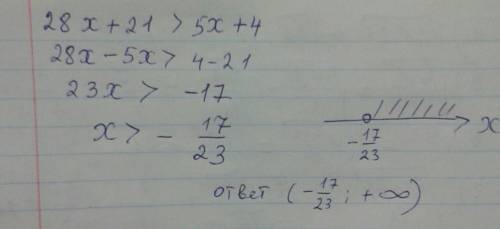 28x + 21 > 5x + 4
28x - 5x > 4 - 21
23x > -17
x > - 17/23
-17/23 x
ответ (-17/23; +∞)